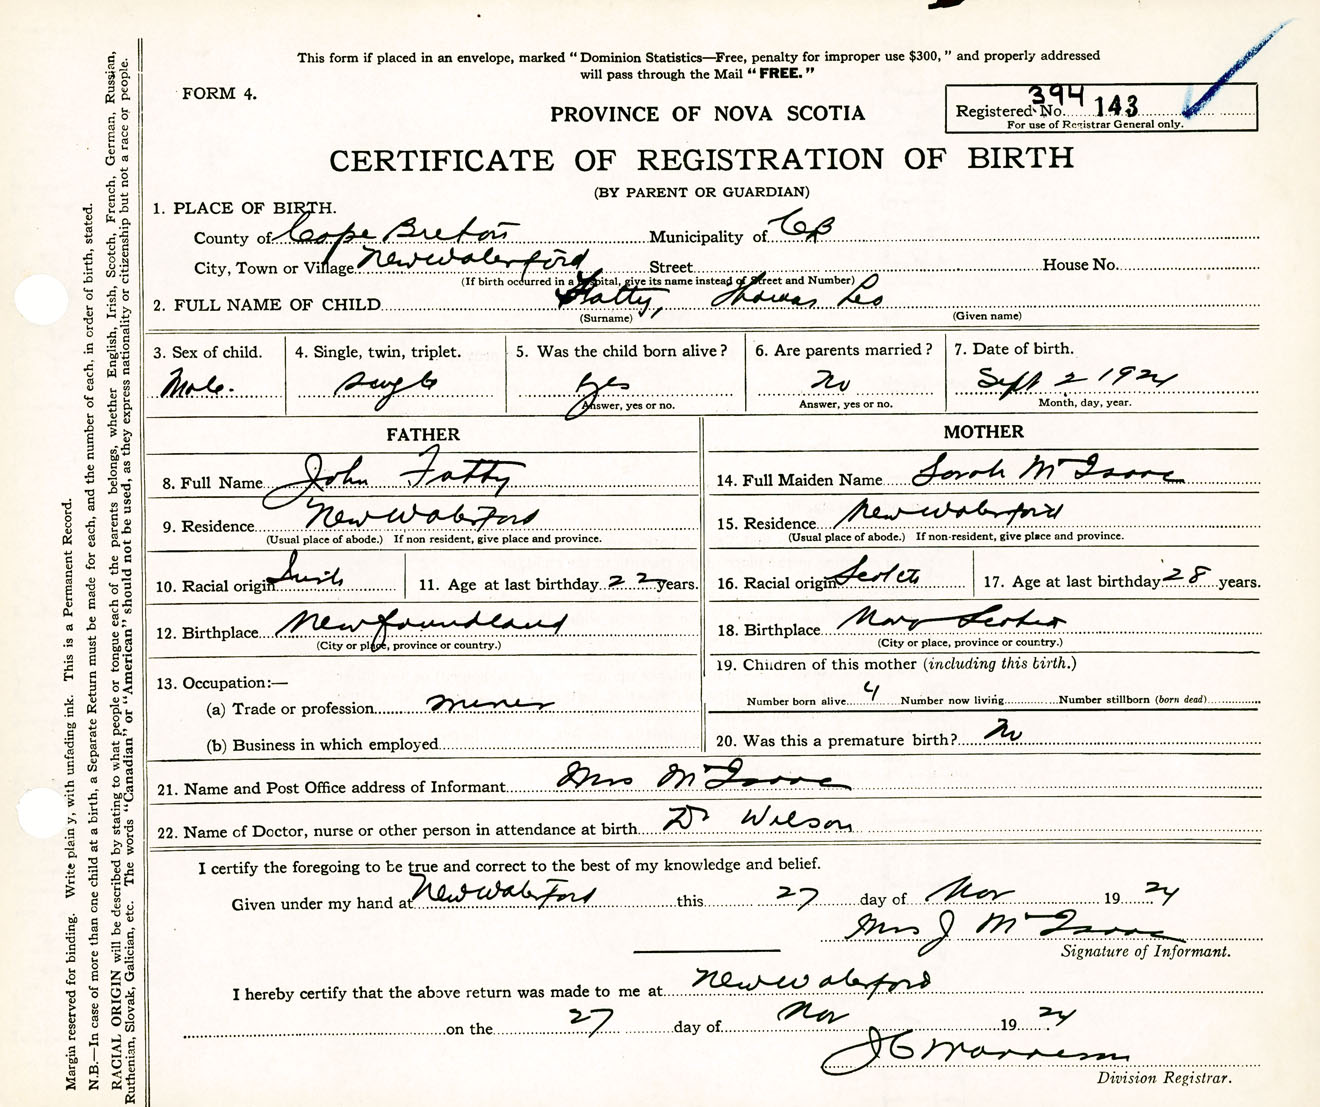 This form if placed in an envelope, marked “Dominion Statistics—Free, penalty for improper use $300,” and properly addressed
will pass through the Mail “FREE.”
FORM 4.
394
PROVINCE OF NOVA SCOTIA
Registered No. 143
For use of Registrar General only.
CERTIFICATE OF REGISTRATION OF BIRTH
(BY PARENT OR GUARDIAN)
1. PLACE OF BIRTH.
County of Cape Breton Municipality of CB
City, Town or Village New Waterford Street House No.
(If birth occurred in a hospital, give its name instead of Street and Number)
2. FULL NAME OF CHILD Fatty, Thomas Leo
(Surname) (Given name)
3. Sex of child. 4. Single, twin, triplet. 5. Was the child born alive? 6. Are parents married? 7. Date of birth.
Male. single yes no Sept 2 1924
Answer, yes or no. Answer, yes or no. Month, day, year.
FATHER
8. Full Name John Fatty
9. Residence New Waterford
(Usual place of abode.) If non resident, give place and province.
10. Racial origin Irish 11. Age at last birthday 22 years.
12. Birthplace Newfoundland
(City or place, province or country.)
13. Occupation:—
(a) Trade or profession miner
(b) Business in which employed
MOTHER
14. Full Maiden Name Sarah McIsaac
15. Residence New Waterford
(Usual place of abode.) If non-resident, give place and province.
16. Racial origin Scotch 17. Age at last birthday 28 years.
18. Birthplace Nova Scotia
(City or place, province or country.)
19. Children of this mother (including this birth.)
Number born alive 4 Number now living Number stillborn (born dead)
20. Was this a premature birth? No
21. Name and Post Office address of Informant Mrs McIsaac
22. Name of Doctor, nurse or other person in attendance at birth Dr Wilson
I certify the foregoing to be true and correct to the best of my knowledge and belief.
Given under my hand at New Waterford this 27 day of Nov 1924
Mrs J McIsaac
Signature of Informant.
I hereby certify that the above return was made to me at New Waterford
on the 27 day of Nov 1924
J C Morrison
Division Registrar.
Margin reserved for binding. Write plain y, with unfading ink. This is a Permanent Record.
N.B.—In case of more than one child at a birth, a Separate Return must be made for each, and the number of each, in order of birth, stated.
RACIAL ORIGIN will be described by stating to what people or tongue each of the parents belongs, whether English, Irish, Scotch, French, German, Russian,
Ruthenian, Slovak, Galician, etc. The words “Canadian” or “American” should not be used, as they express nationality or citizenship but not a race or people.